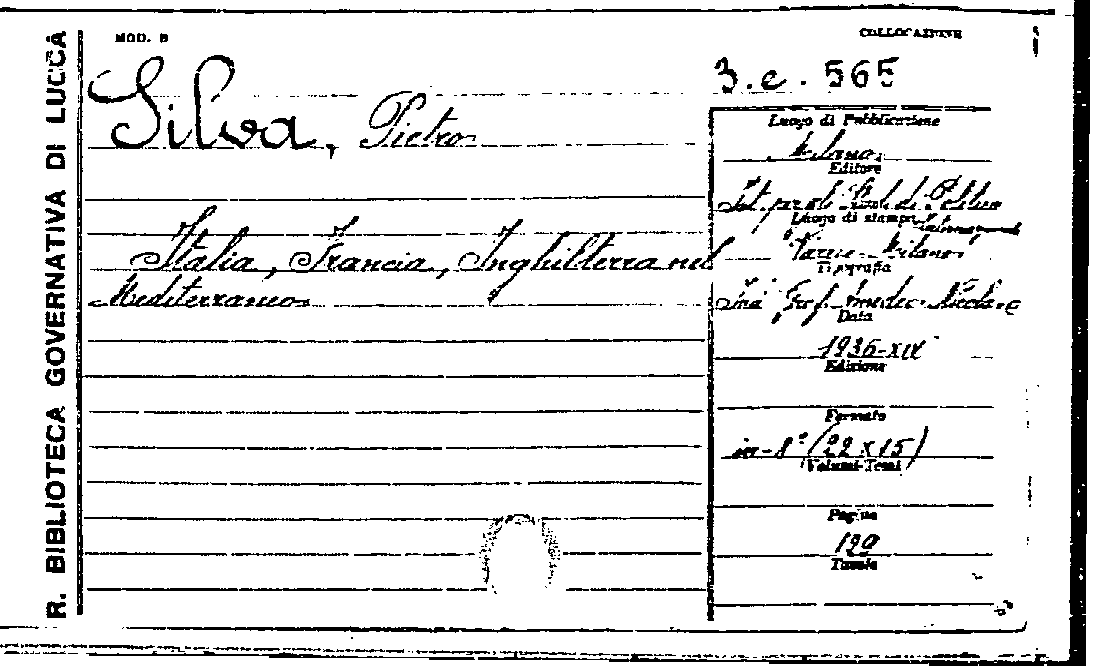 R. BIBLIOTECA GOVERNATIVA DI LUCCA
MOD. B
COLLOCAZIONE
3. e. 565
Silva, Pietro
Italia, Francia, Inghilterra nel
Mediterraneo
Luogo di Pubblicazione
Milano
Editore
Ist. per gli Studi di Politica
Luogo di stampa
Varese-Milano
Tipografia
Prof. Amedeo Nicola
Data
1936-XIV
Edizione
Formato
in-8° (22 x 15)
Volumi-Tomi
Pagine
190
Tavole